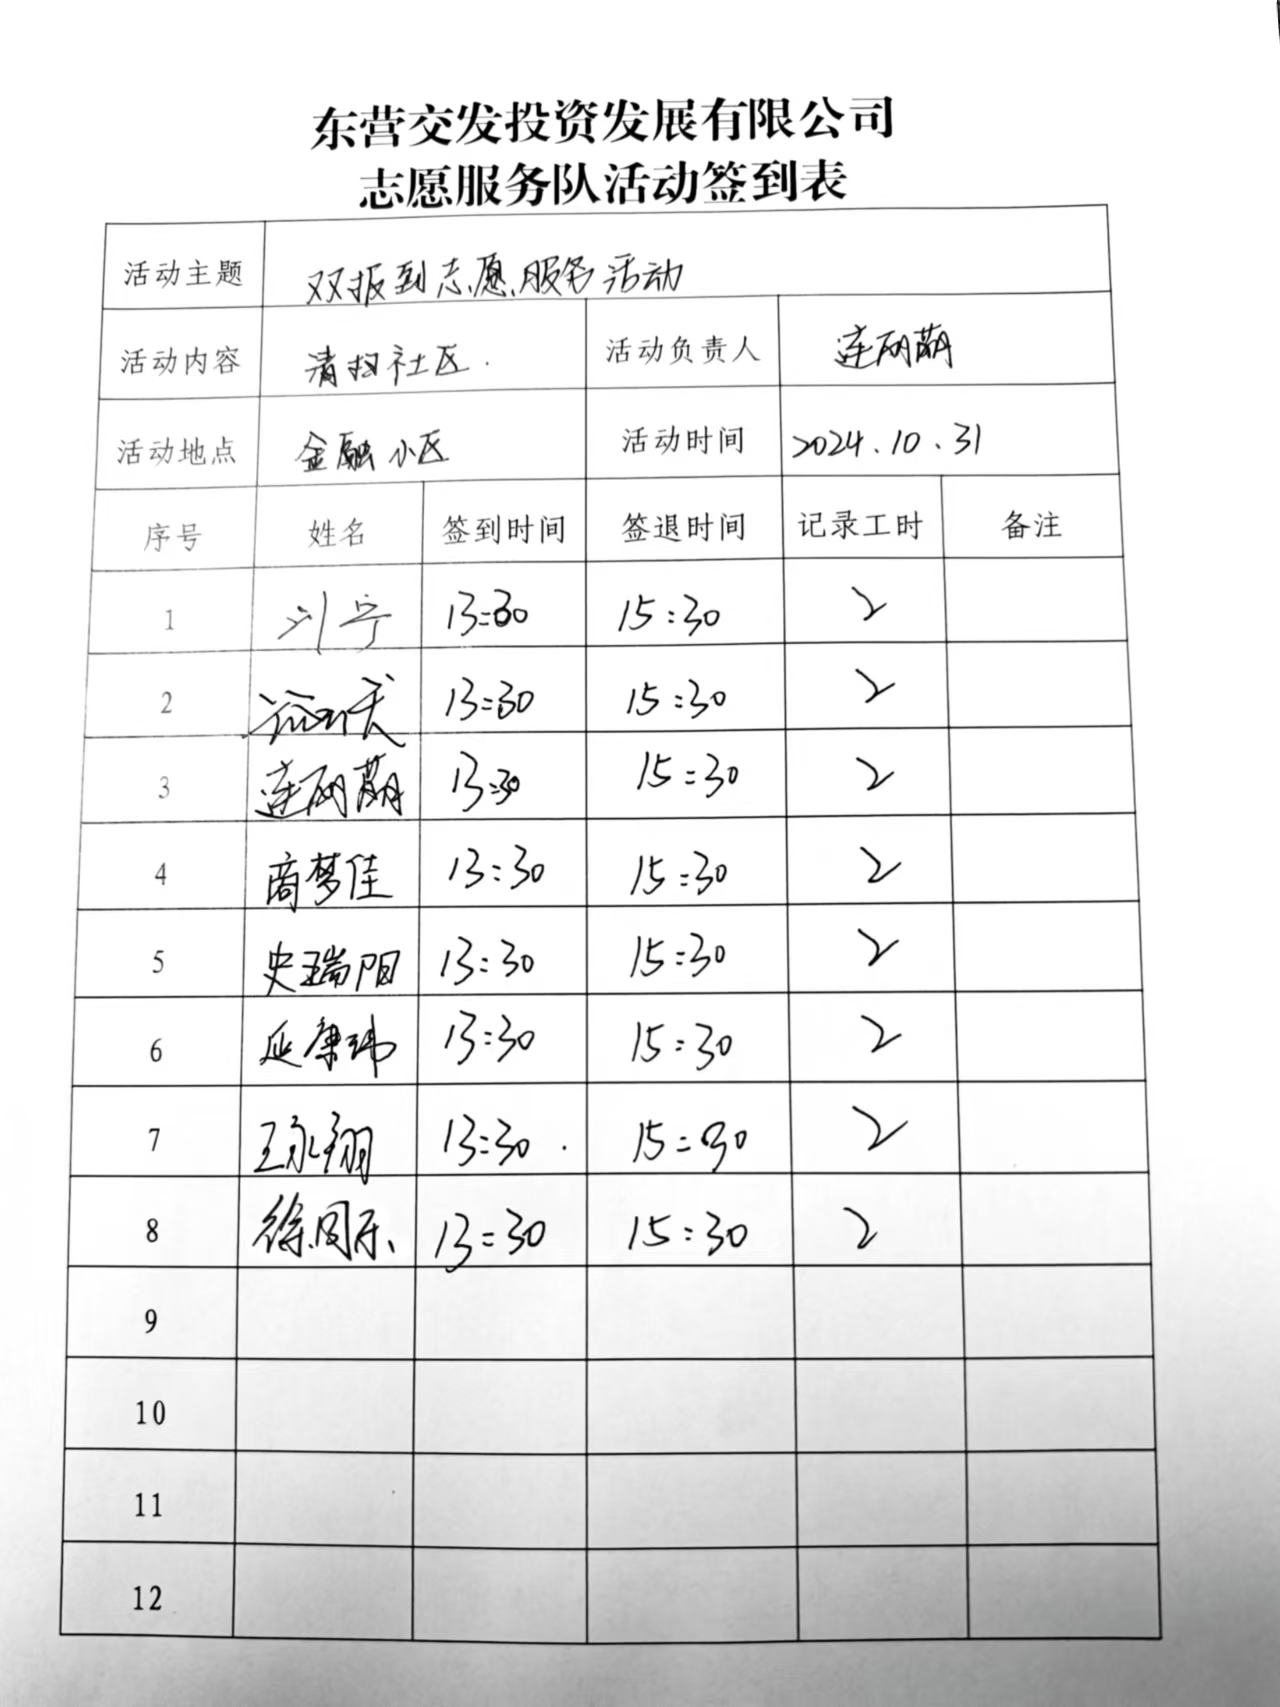 东营交发投资发展有限公司
志愿服务队活动签到表
活动主题 双报到志愿服务活动
活动内容 清扫社区. 活动负责人 连丽萌
活动地点 金融小区 活动时间 2024.10.31
序号 姓名 签到时间 签退时间 记录工时 备注
1 刘宁 13:30 15:30 2
2 13:30 15:30 2
3 连丽萌 13:30 15:30 2
4 商梦佳 13:30 15:30 2
5 史瑞阳 13:30 15:30 2
6 延康玮 13:30 15:30 2
7 王永翔 13:30 15:30 2
8 徐同乐 13:30 15:30 2
9
10
11
12